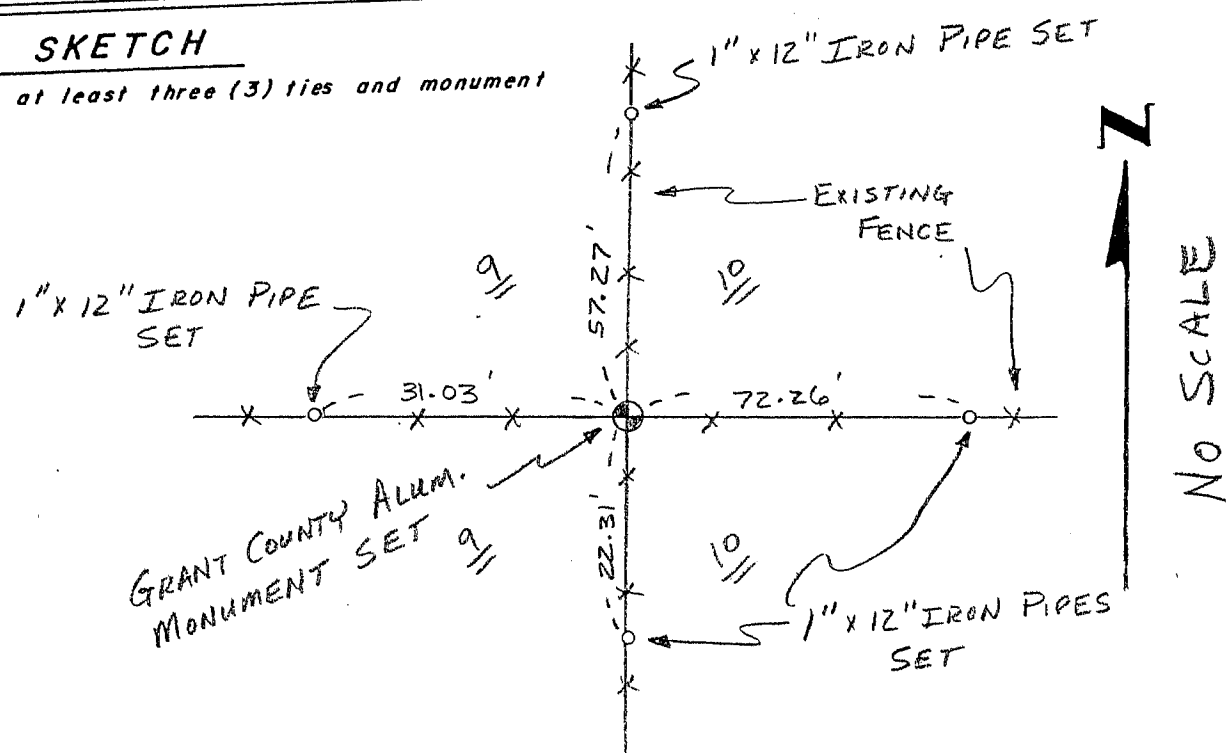 SKETCH
at least three (3) ties and monument
1" x 12" IRON PIPE SET
N
EXISTING
FENCE
9
10
57.27'
1" x 12" IRON PIPE
SET
31.03'
72.26'
NO SCALE
GRANT COUNTY ALUM.
MONUMENT SET
9
22.31'
10
1" x 12" IRON PIPES
SET